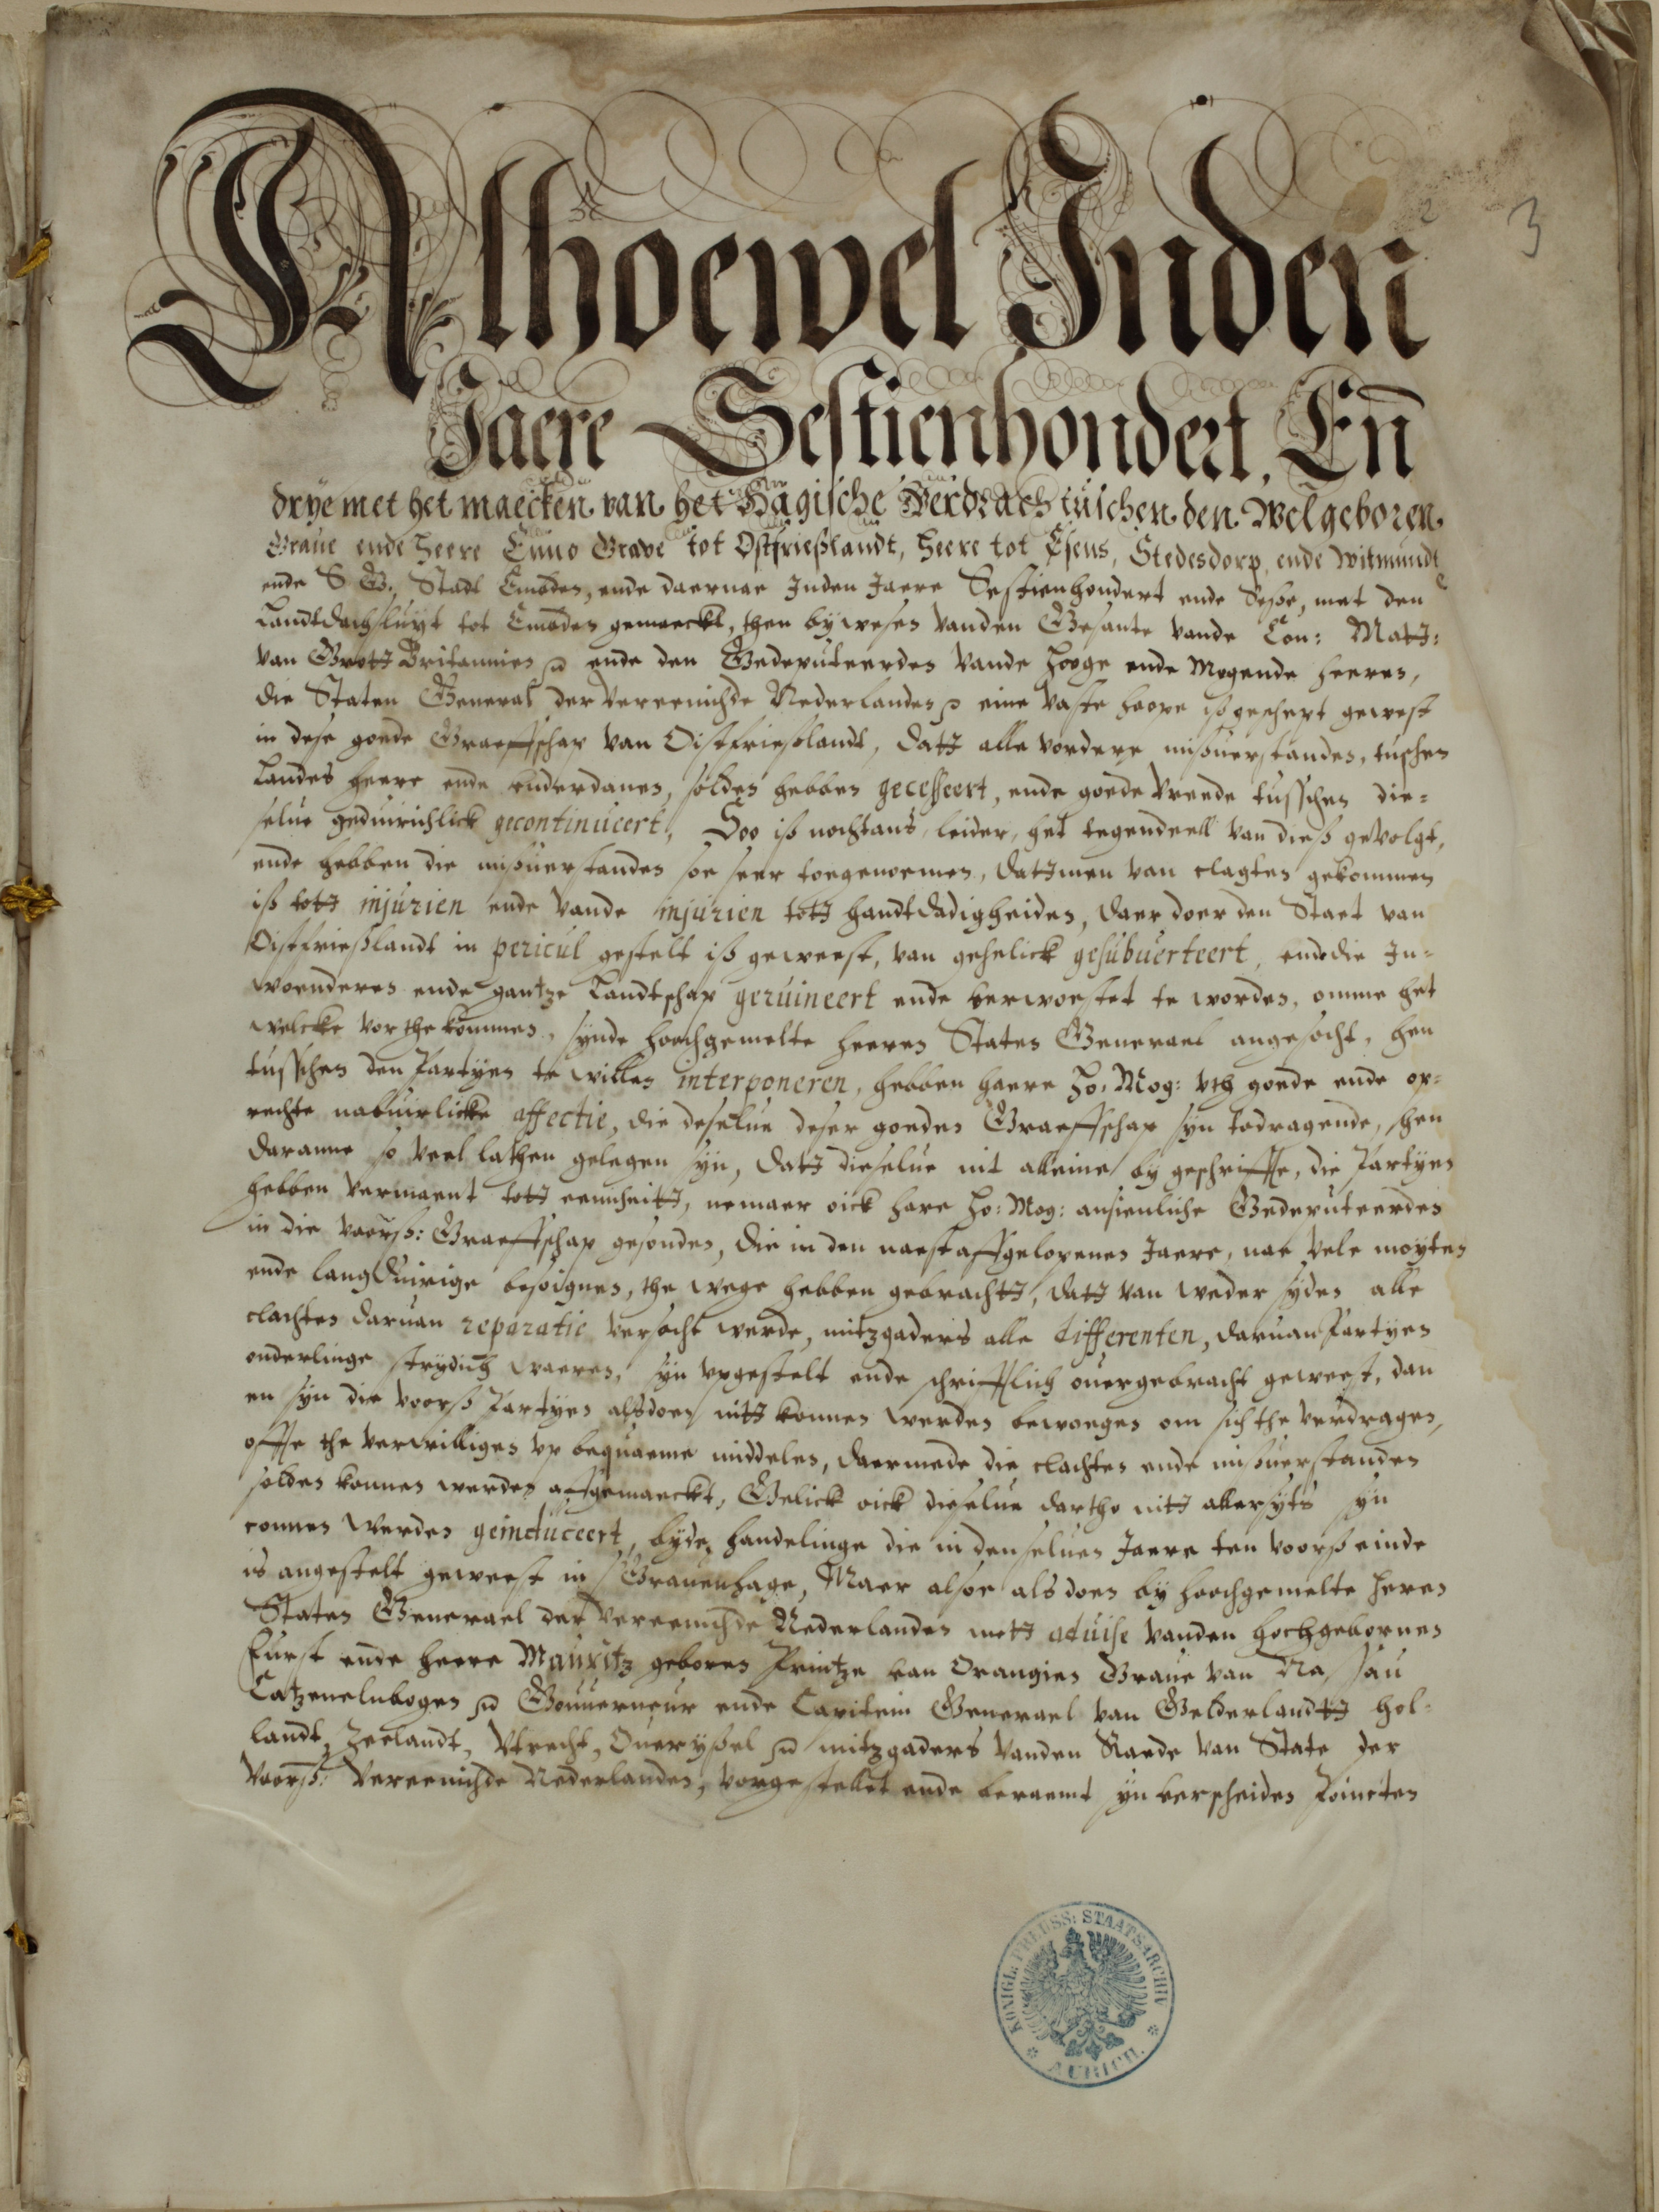 3
Alhoewel Inden
Jaere Sestienhondert, En̄
drye met het maecken van het Hagische Verdrach tuschen den Welgeboren
Graue ende Heere Enno Grave tot Ostfrießlandt, Heere tot Esens, Stedesdorp, ende Witmundt
ende S. G. Stadt Embden, ende daernae Inden Jaere Sestienhondert ende Seße, met den
Landtdachsluyt tot Embden gemaeckt, then bywesen vanden Gesante vande Con: Matt:
van Grott Britannien ende den Gedeputeerden vande Hooge ende Mogende Heeren,
die Staten General der Vereenichde Nederlanden eine vaste hoope iß geschept gewest
in dese goede Graeffschap van Oistfrießlandt, datt alle vordere mißuerstanden, tuschen
Landes Heere ende onderdanen, solden hebben gecesseert, ende goede vreede tusschen die=
selue geduirichlick gecontinueert, Soo iß nochtans, leider, het tegendeell van dieß gevolgt,
ende hebben die mißuerstanden soe seer toegenoemen, dattmen van clagten gekommen
iß tott injurien ende vande injurien tott handtdadigheiden, daer doer den Staet van
Oistfrießlandt in pericul gestelt iß geweest, van gehelick gesubuerteert, ende die In=
woenderen ende gantze Landtschap geruineert ende verwoestet te worden, omme het
welcke vor the kommen, synde hoochgemelte Heeren Staten Generael angesocht, hen
tusschen den Partyen te willen interponeren, hebben haere Ho: Mog: vth goede ende op=
rechte natuirlicke affectie, die deselue deser goeden Graeffschap syn todragende, then
daranne so veel lathen gelegen syn, datt dieselue nit alleine by geschriffte, die Partyen
hebben vermaent tott eennheitt, nemaer oick hare Ho: Mog: ansienliche Gedeputeerden
in die voorß: Graeffschap gesonden, die in den naest affgelopenen Jaere, nae vele moyten
ende langduirige besoignen, the wege hebben gebrachtt, datt van weder syden alle
clachten daruan reparatie versocht werde, mitzgaders alle differenten, daruan Partyen
onderlinge strydich waeren, syn vpgestelt ende schrifftlich ouergebracht geweest, dan
en syn die voorß Partyen alsdoen nitt konnen werden bewoegen om sich the verdragen,
offte the verwilligen vp bequaeme middelen, daermede die clachten ende mißuerstanden
solden konnen werden affgemaeckt, Gelick oick dieselue dartho nitt allersyts syn
connen werden geinduceert, byde handelinge die in denseluen Jaere ten voorß einde
is angestelt geweest in s'Grauenhage, Maer alsoe alsdoen by hoochgemelte Heren
Staten Generael der Vereenichde Nederlanden mett aduise vanden Hochgebornen
Furst ende Heere Mauritz geboren Printze van Orangien Graue van Nassau
Catzenelnbogen Gouuerneur ende Capitein Generael van Gelderlandtt Hol=
landt, Zeelandt, Vtrecht, Oueryßel mitzgaders vanden Raede van State der
voorß: Vereenichde Nederlanden, vorgestellet ende beraemt syn verscheiden Poincten
KÖNIGL. PREUSS: STAATSARCHIV
AURICH.